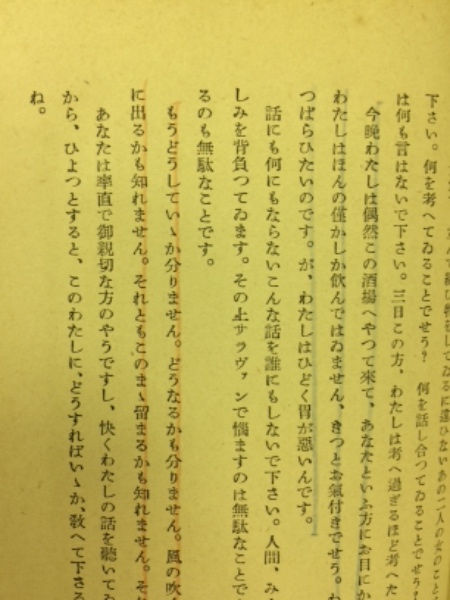 下さい。何を考へてゐることでせう?　何を話し合つてゐることでせう
は何も言はないで下さい。三日この方、わたしは考へ過ぎるほど考へた
今晩わたしは偶然この酒場へやつて來て、あなたといふ方にお目にか
わたしはほんの僅かしか飲んではゐません、きつとお氣付きでせう。わ
つぱらひたいのです。が、わたしはひどく胃が惡いんです。
話にも何にもならないこんな話を誰にもしないで下さい。人間、み
しみを背負つてゐます。その上サラヴァンで惱ますのは無駄なことで
るのも無駄なことです。
もうどうしていゝか分りません。どうなるかも分りません。風の吹
に出るかも知れません。それともこのまゝ留まるかも知れません。それ
あなたは率直で御親切な方のやうですし、快くわたしの話を聽いてゐ
から、ひよつとすると、このわたしに、どうすればいゝか、敎へて下さる
ね。